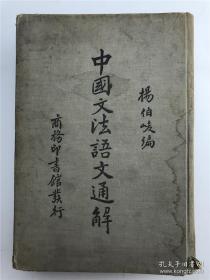 楊伯峻編
中國文法語文通解
商務印書館發行
孔夫子旧书网